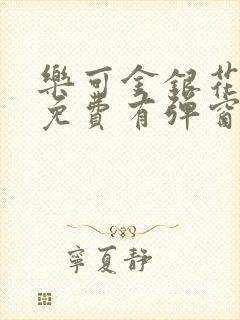 樂可金銀花
免費有彈窗
寧夏靜